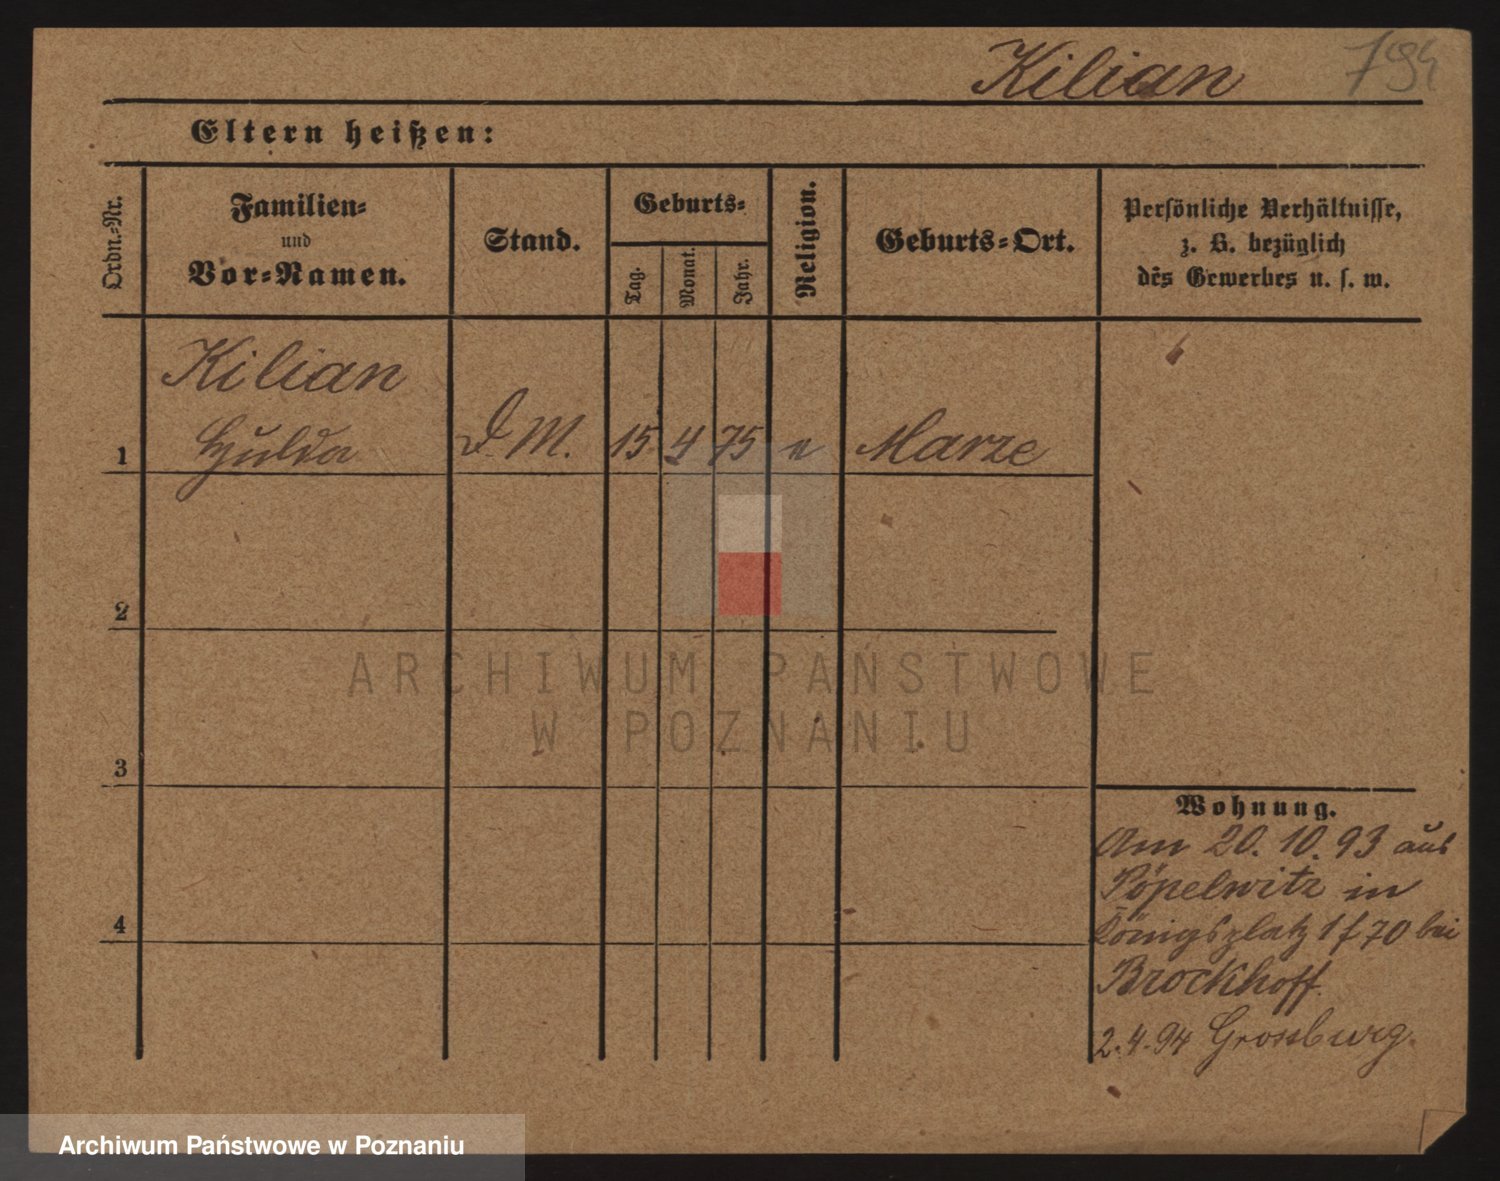 Kilian 794
Eltern heißen:
Ordn.-Nr.
Familien-
und
Vor-Namen.
Stand.
Geburts-
Tag.
Monat.
Jahr.
Religion.
Geburts-Ort.
Persönliche Verhältnisse,
z. B. bezüglich
des Gewerbes u. s. w.
Kilian
1 Hulda D. M. 15 4 75 Marze
2
ARCHIWUM PAŃSTWOWE
W POZNANIU
3
Wohnung.
Am 20. 10. 93 aus
Pöpelwitz in
4
Königsplatz 1 f 70 bei
Brockhoff.
2. 4. 94 Grossburg.
Archiwum Państwowe w Poznaniu